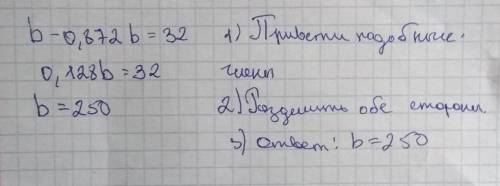 b - 0,872b = 32
0,128b = 32
b = 250
1) Привести подобные
члены
2) Разделить обе стороны.
3) Ответ: b = 250